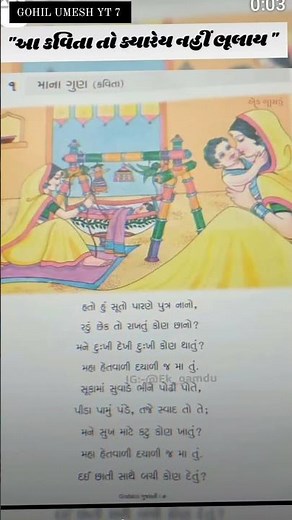 GOHIL UMESH YT 7
0:03
"આ કવિતા તો ક્યારેય નહીં ભૂલાય "
૧ માના ગુણ (કવિતા)
હતો હું સૂતો પારણે પુત્ર નાનો,
રડું છેક તો રાખતું કોણ છાનો?
મને દુઃખી દેખી દુઃખી કોણ થાતું?
મહા હેતવાળી દયાળી જ મા તું.
IG:-/@Ek_gamdu
સૂકામાં સુવાડે ભીને પોઢી પોતે,
પીડા પામું પંડે, તજે સ્વાદ તો તે;
મને સુખ માટે કટુ કોણ ખાતું?
મહા હેતવાળી દયાળી જ મા તું.
દઈ છાતી સાથે બચી કોણ દેતું?